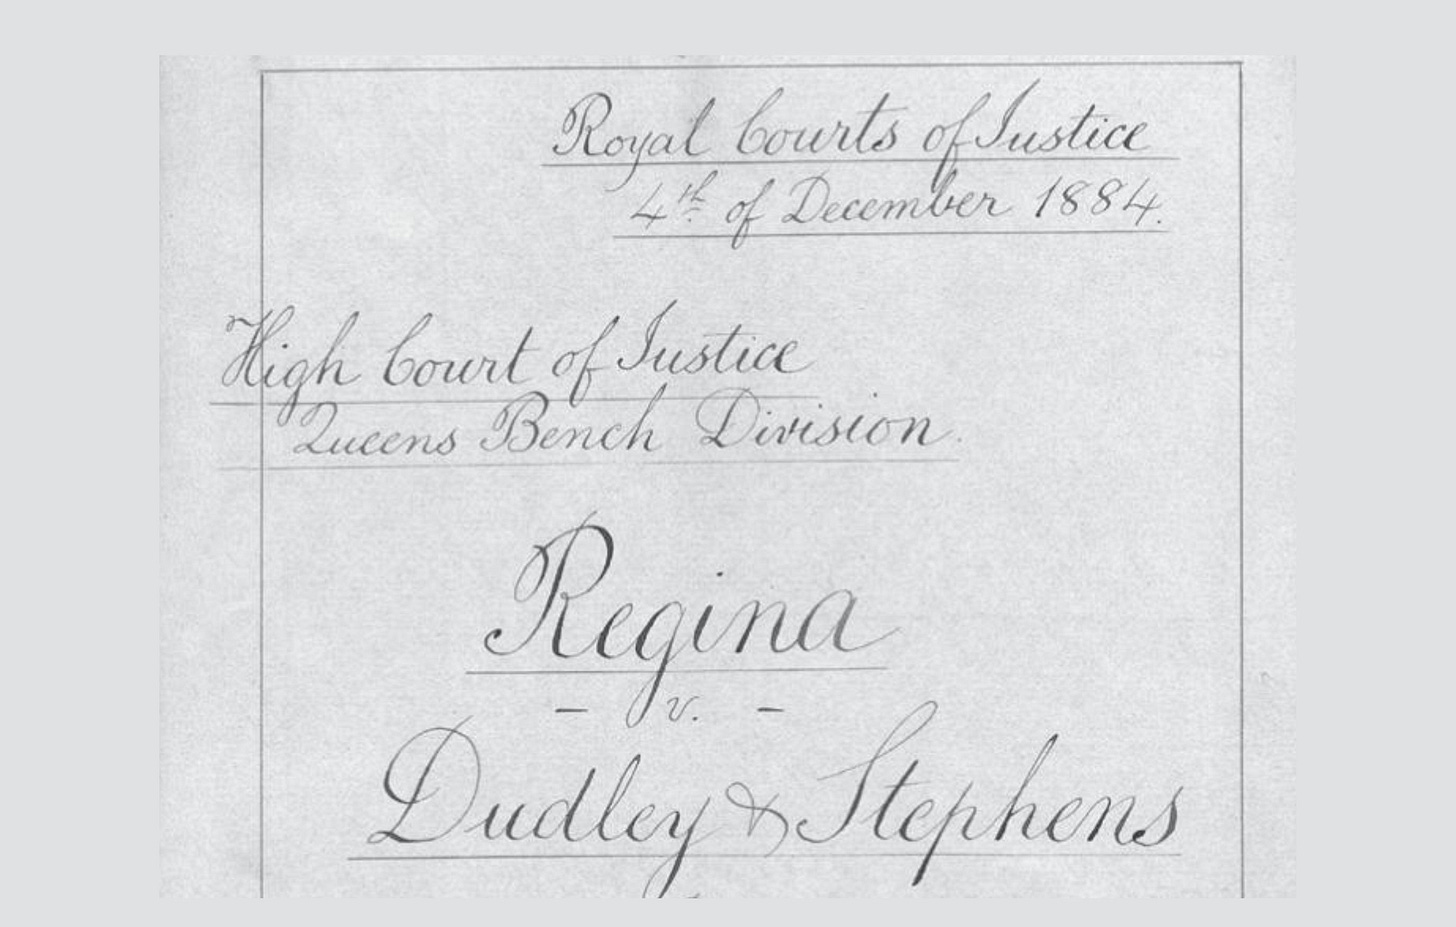 Royal Courts of Justice
4th of December 1884.
High Court of Justice
Queens Bench Division.
Regina
- v. -
Dudley & Stephens